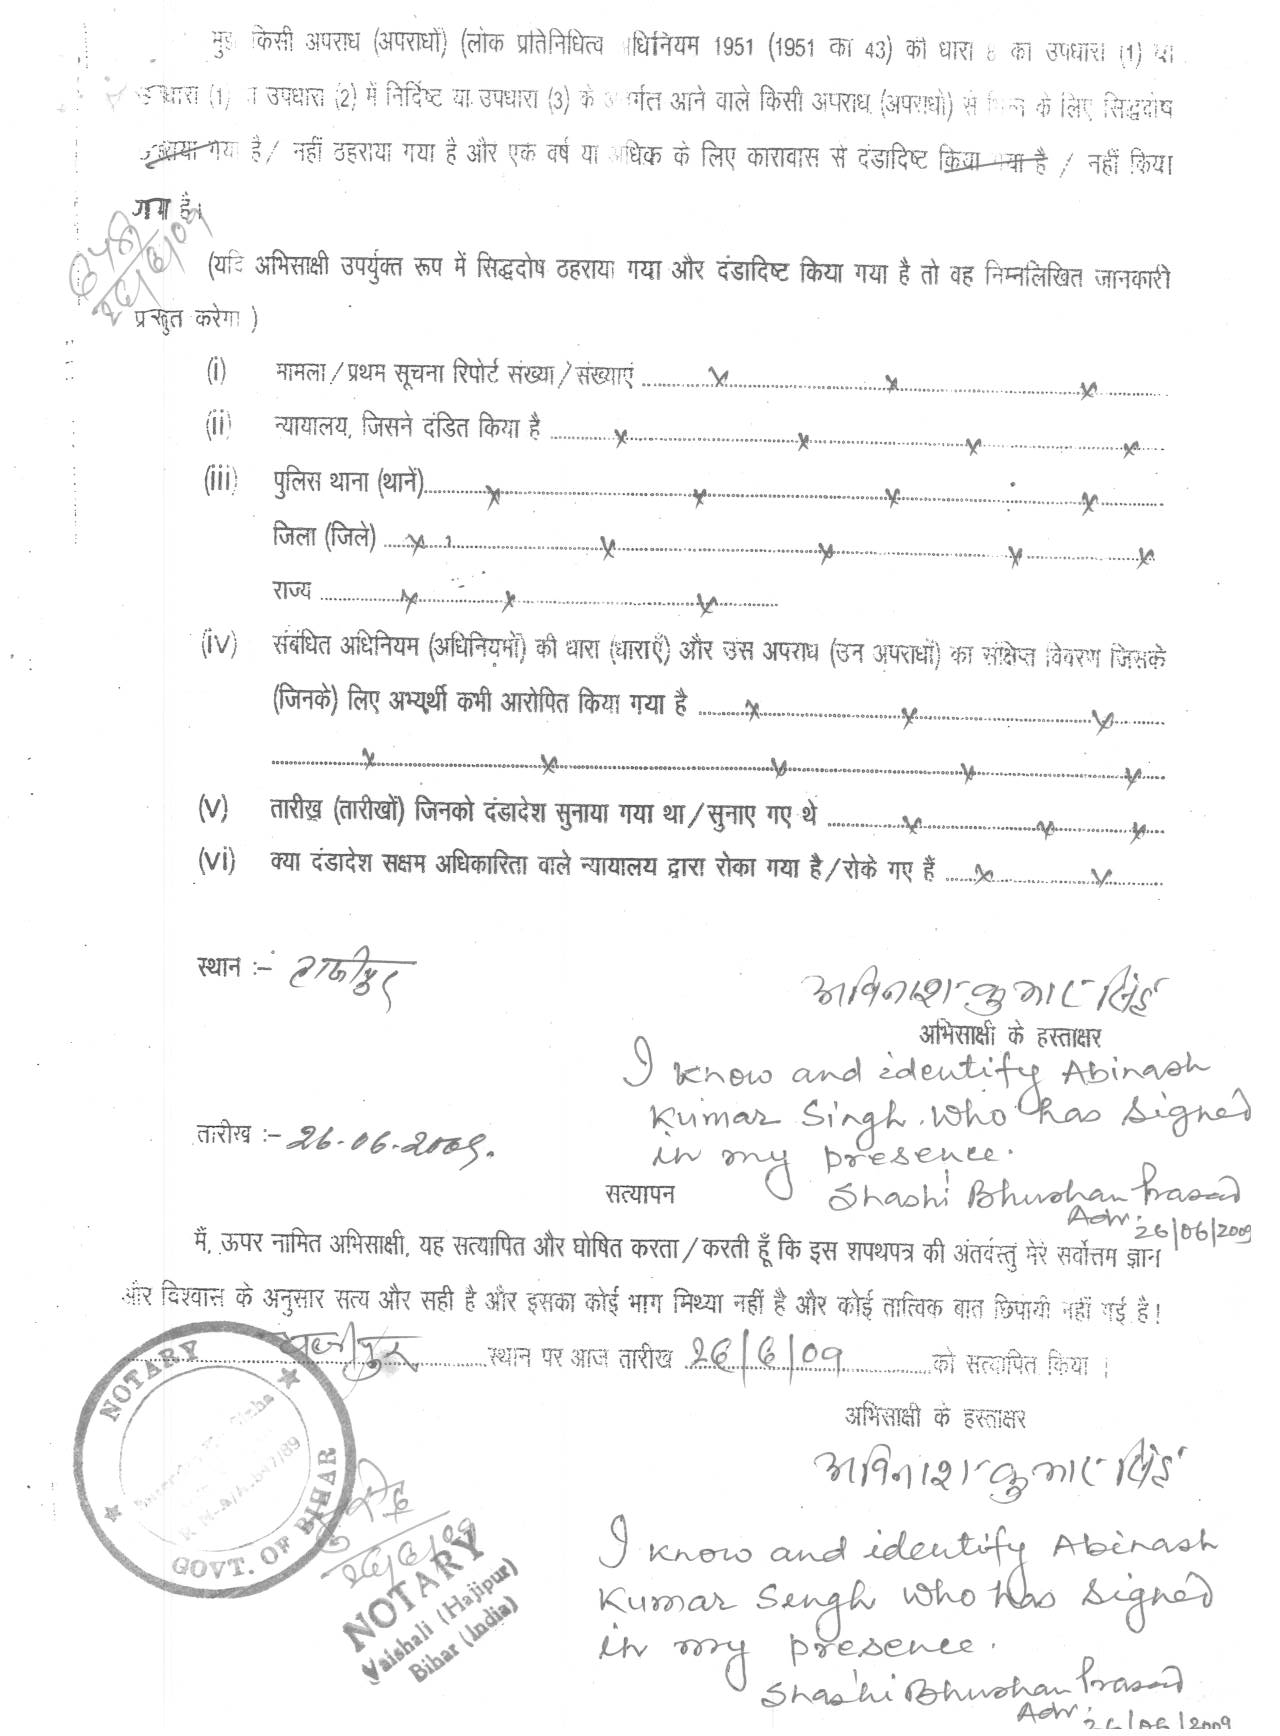 किसी अपराध (अपराधों) (लोक प्रतिनिधित्व धिनियम 1951 (1951 का 43) की धारा 8 का उपधारा (1) या
धारा (1) उपधारा (2) में निर्दिष्ट या उपधारा (3) के र्गत आने वाले किसी अपराध (अपराधों) से के लिए सिद्धदोष
गया है / नहीं ठहराया गया है और एक वर्ष या अधिक के लिए कारावास से दंडादिष्ट किया गया है / नहीं किया
गया है।
26/6/09
(यदि अभिसाक्षी उपर्युक्त रूप में सिद्धदोष ठहराया गया और दंडादिष्ट किया गया है तो वह निम्नलिखित जानकारी
प्रस्तुत करेगा )
(i) मामला / प्रथम सूचना रिपोर्ट संख्या / संख्याएं ..... x x x
(ii) न्यायालय, जिसने दंडित किया है ..... x x x x
(iii) पुलिस थाना (थानें)..... x x x x
जिला (जिले) ..... x x x x x
राज्य ..... x x x
(iv) संबंधित अधिनियम (अधिनियमों) की धारा (धाराएँ) और उस अपराध (उन अपराधों) का संक्षिप्त विवरण जिसके
(जिनके) लिए अभ्यर्थी कभी आरोपित किया गया है ..... x x x
..... x x x x x
(v) तारीख (तारीखों) जिनको दंडादेश सुनाया गया था / सुनाए गए थे ..... x x x
(vi) क्या दंडादेश सक्षम अधिकारिता वाले न्यायालय द्वारा रोका गया है / रोके गए हैं ..... x x
स्थान :- हाजीपुर
अविनाश कुमार सिंह
अभिसाक्षी के हस्ताक्षर
I know and identify Abinash
Kumar Singh. Who has signed
तारीख :- 26-06-2009.
in my presence.
सत्यापन
Shashi Bhushan Prasad
Adv. 26/06/2009
मैं, ऊपर नामित अभिसाक्षी, यह सत्यापित और घोषित करता / करती हूँ कि इस शपथपत्र की अंतर्वस्तु मेरे सर्वोत्तम ज्ञान
और विश्वास के अनुसार सत्य और सही है और इसका कोई भाग मिथ्या नहीं है और कोई तात्विक बात छिपायी नहीं गई है!
हाजीपुर ..... स्थान पर आज तारीख 26/6/09 ..... को सत्यापित किया |
अभिसाक्षी के हस्ताक्षर
अविनाश कुमार सिंह
NOTARY
GOVT. OF BIHAR
26/6/09
NOTARY
Vaishali (Hajipur)
Bihar (India)
I know and identify Abinash
Kumar Singh Who has signed
in my presence.
Shashi Bhushan Prasad
Adv. 26/06/2009